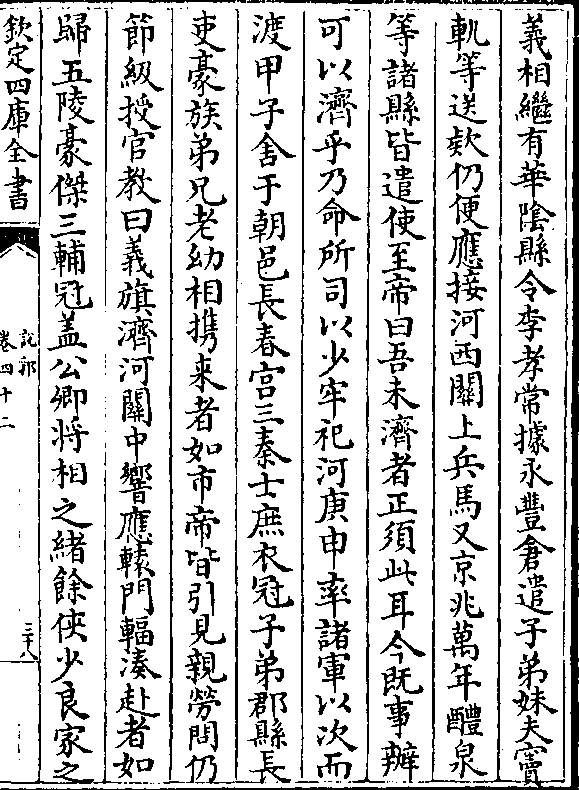 義相繼有華陰縣令李孝常據永豐倉遣子弟妹夫竇
軌等送欵仍便應接河西關上兵馬又京兆萬年醴泉
等諸縣皆遣使至帝曰吾未濟者正須此耳今既事辦
可以濟乎乃命所司以少牢祀河庚申率諸軍以次而
渡甲子舍于朝邑長春宫三秦士庶衣冠子弟郡縣長
吏豪族弟兄老幼相攜来者如市帝皆引見親勞問仍
節級授官教曰義旗濟河關中響應轅門輻湊赴者如
歸五陵豪傑三輔冠盖公卿將相之緒餘俠少良家之
欽定四庫全書
説郛
卷四十二
三十八